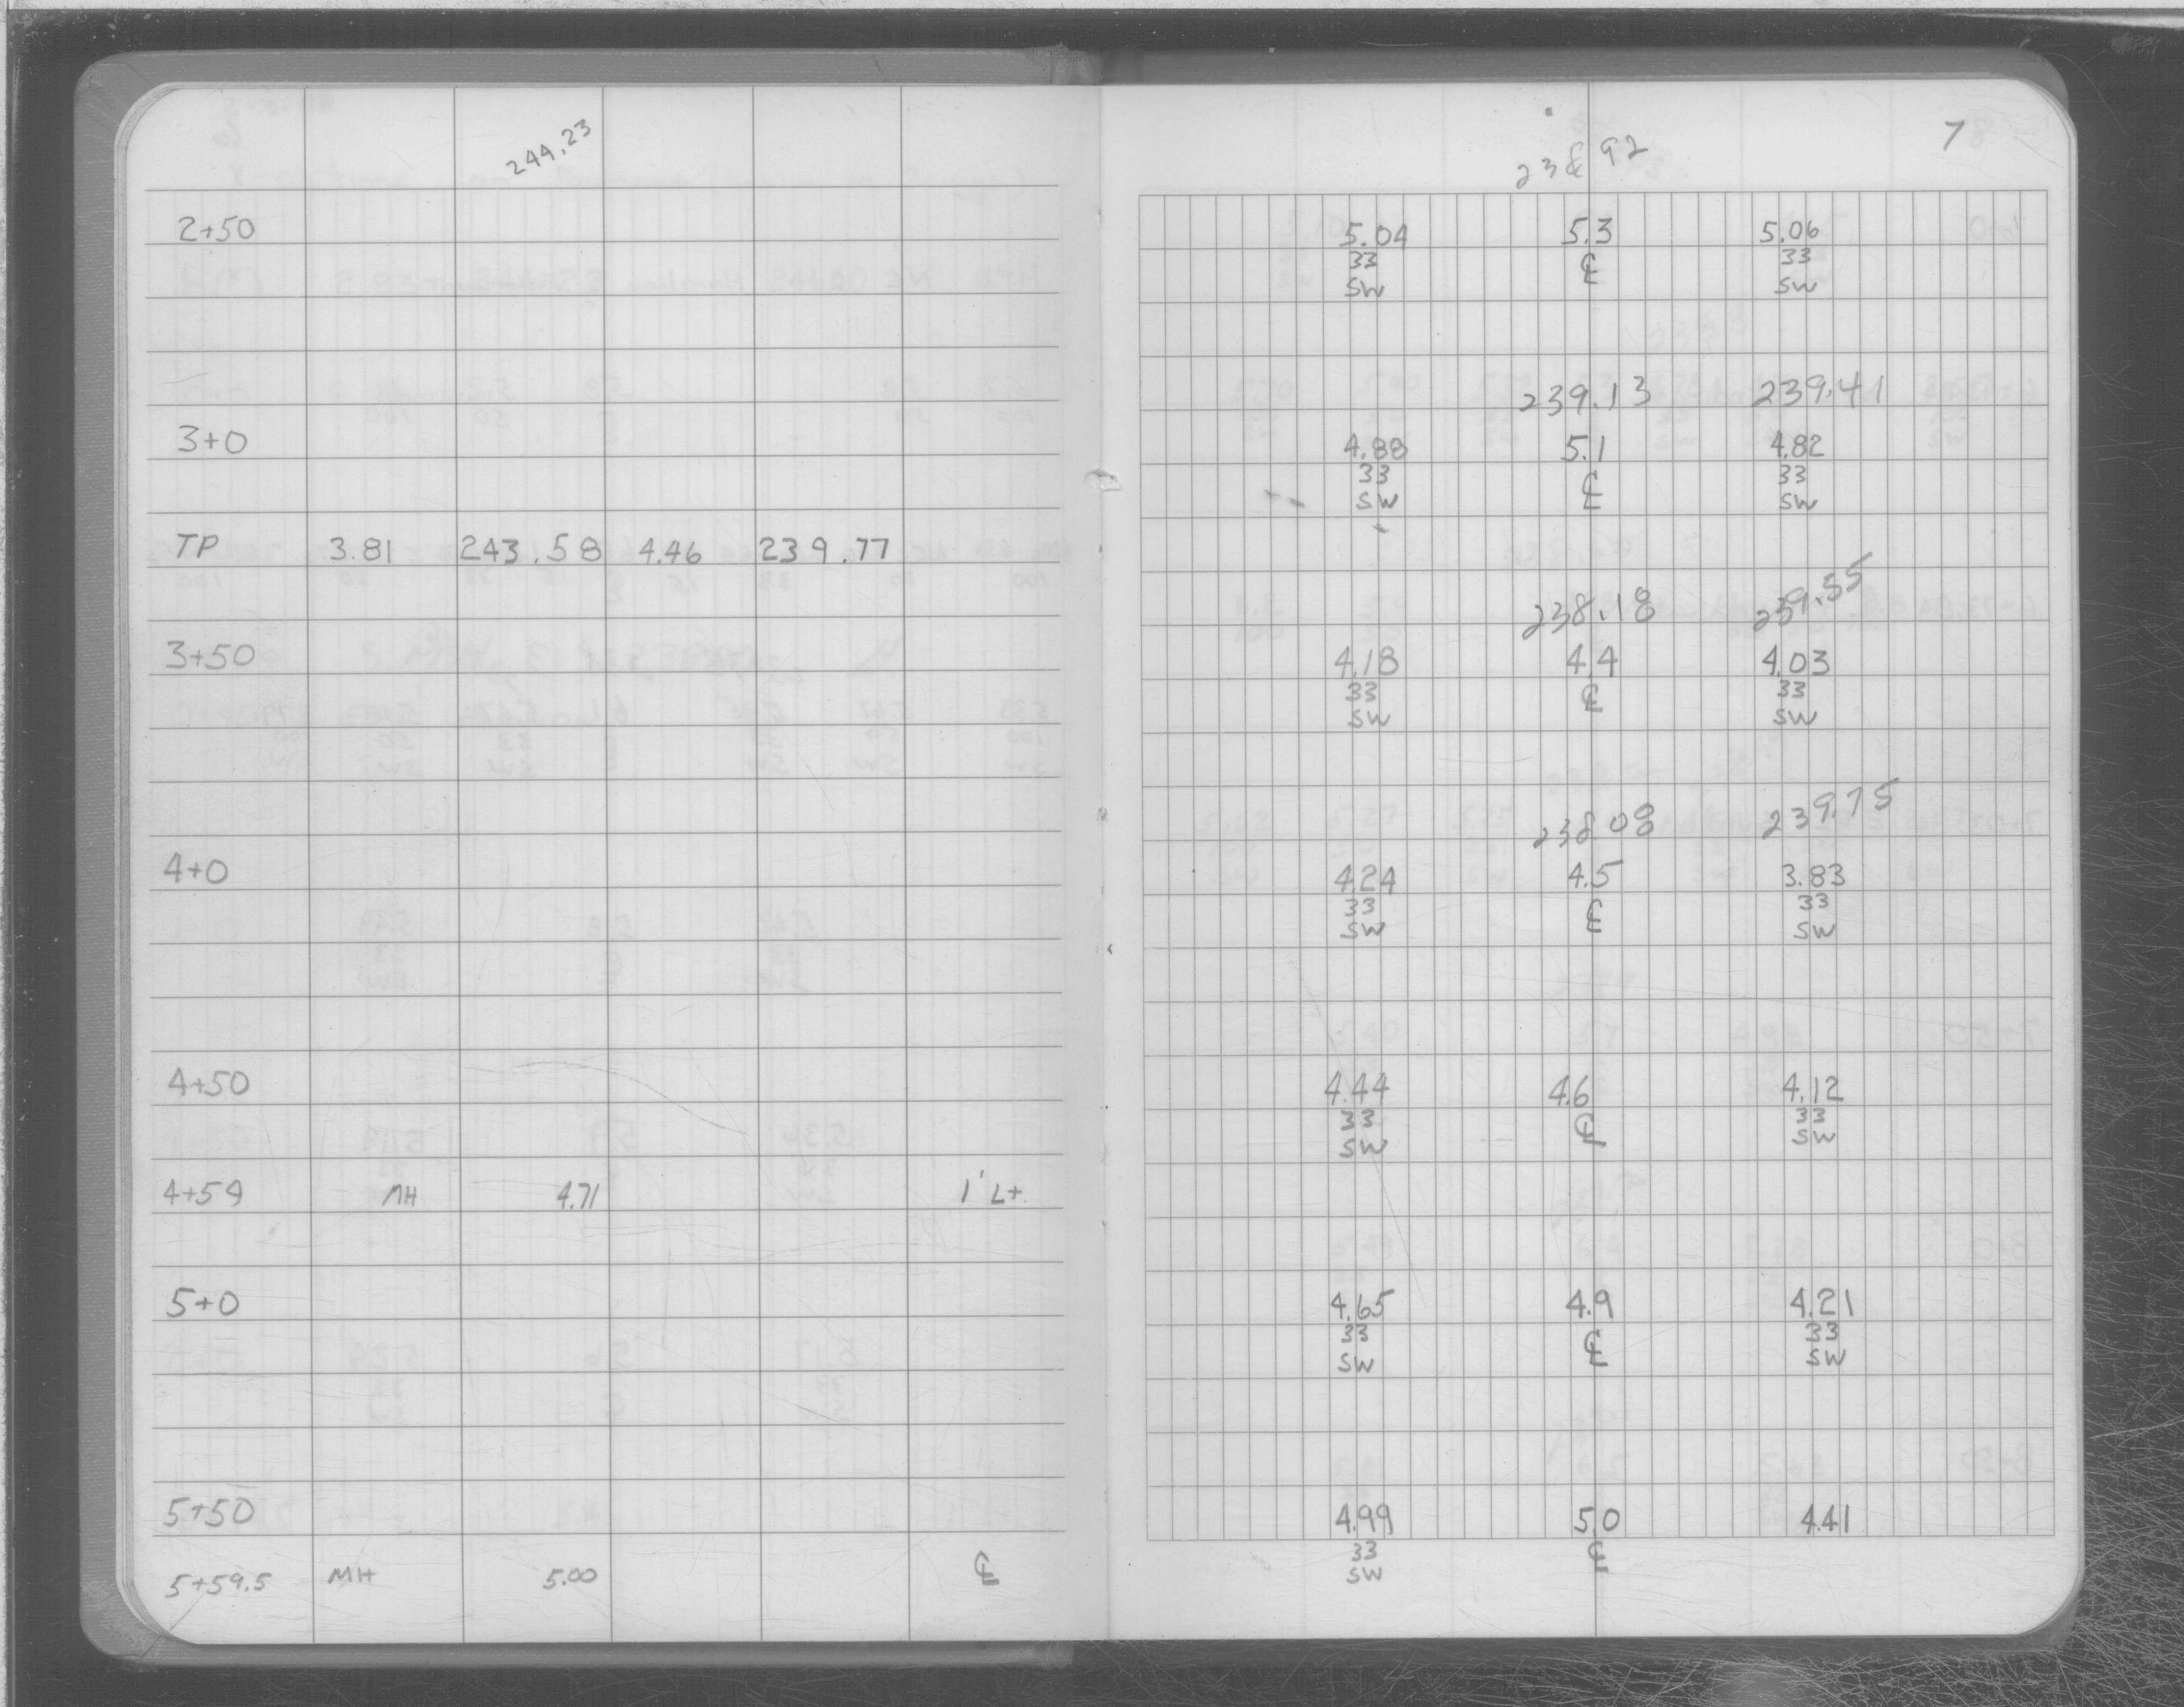 244.23
238.92 7
2+50 5.04 5.3 5.06
33 ℄ 33
SW SW
239.13 239.41
3+0 4.88 5.1 4.82
33 ℄ 33
SW SW
TP 3.81 243.58 4.46 239.77
238.18 239.55
3+50 4.18 4.4 4.03
33 ℄ 33
SW SW
238.08 239.75
4+0 4.24 4.5 3.83
33 ℄ 33
SW SW
4+50 4.44 4.6 4.12
33 ℄ 33
SW SW
4+59 MH 4.71 1' Lt
5+0 4.65 4.9 4.21
33 ℄ 33
SW SW
5+50 4.99 5.0 4.41
33 ℄
SW
5+59.5 MH 5.00 ℄